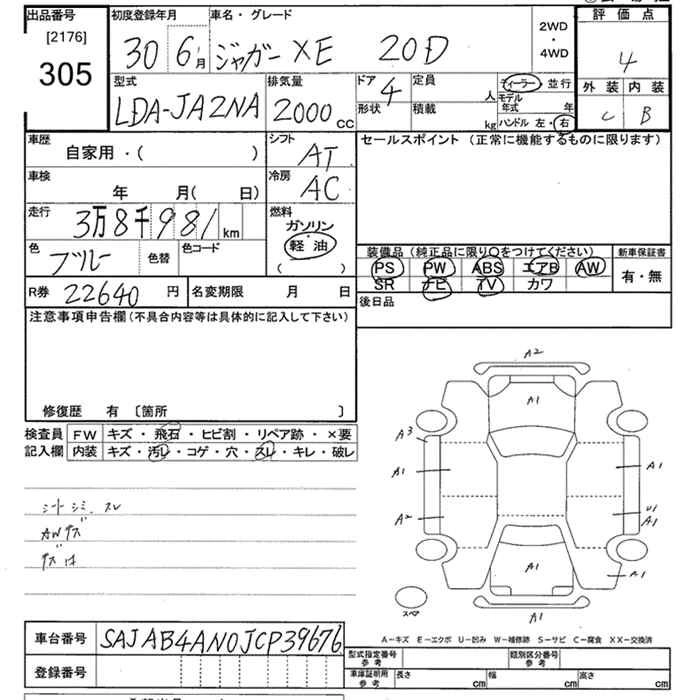 出品番号
[2176]
305
初度登録年月
30 6 月
車名・グレード
ジャガー XE 20D
2WD
・
4WD
評価点
4
外装 内装
C B
型式
LDA-JA2NA
排気量
2000 cc
ドア
4
形状
定員
人
積載
kg
ディーラー 並行
モデル
年式 年
ハンドル 左・右
車歴
自家用・( )
シフト
AT
セールスポイント (正常に機能するものに限ります)
車検
年 月( 日)
冷房
AC
走行
3万8千981 km
燃料
ガソリン
軽油
( )
色
ブルー
色替
色コード
装備品 (純正品に限り○をつけてください)
新車保証書
PS PW ABS エアB AW
SR ナビ TV カワ
有・無
R券 22640 円
名変期限 月 日
後日品
注意事項申告欄(不具合内容等は具体的に記入して下さい)
修復歴 有 〔箇所 〕
検査員
記入欄
FW キズ・飛石・ヒビ割・リペア跡・×要
内装 キズ・汚レ・コゲ・穴・スレ・キレ・破レ
シートシミ、スレ
AWキズ
キズ は
A2
A1
A3
A1
A1
A2
U1
A1
A1
A1
A1
スペア
A-キズ E-エクボ U-凹み W-補修跡 S-サビ C-腐食 XX-交換済
車台番号 SAJAB4AN0JCP39676
登録番号
型式指定番号
参考
類別区分番号
参考
車庫証明用
参考
長さ cm
幅 cm
高さ cm